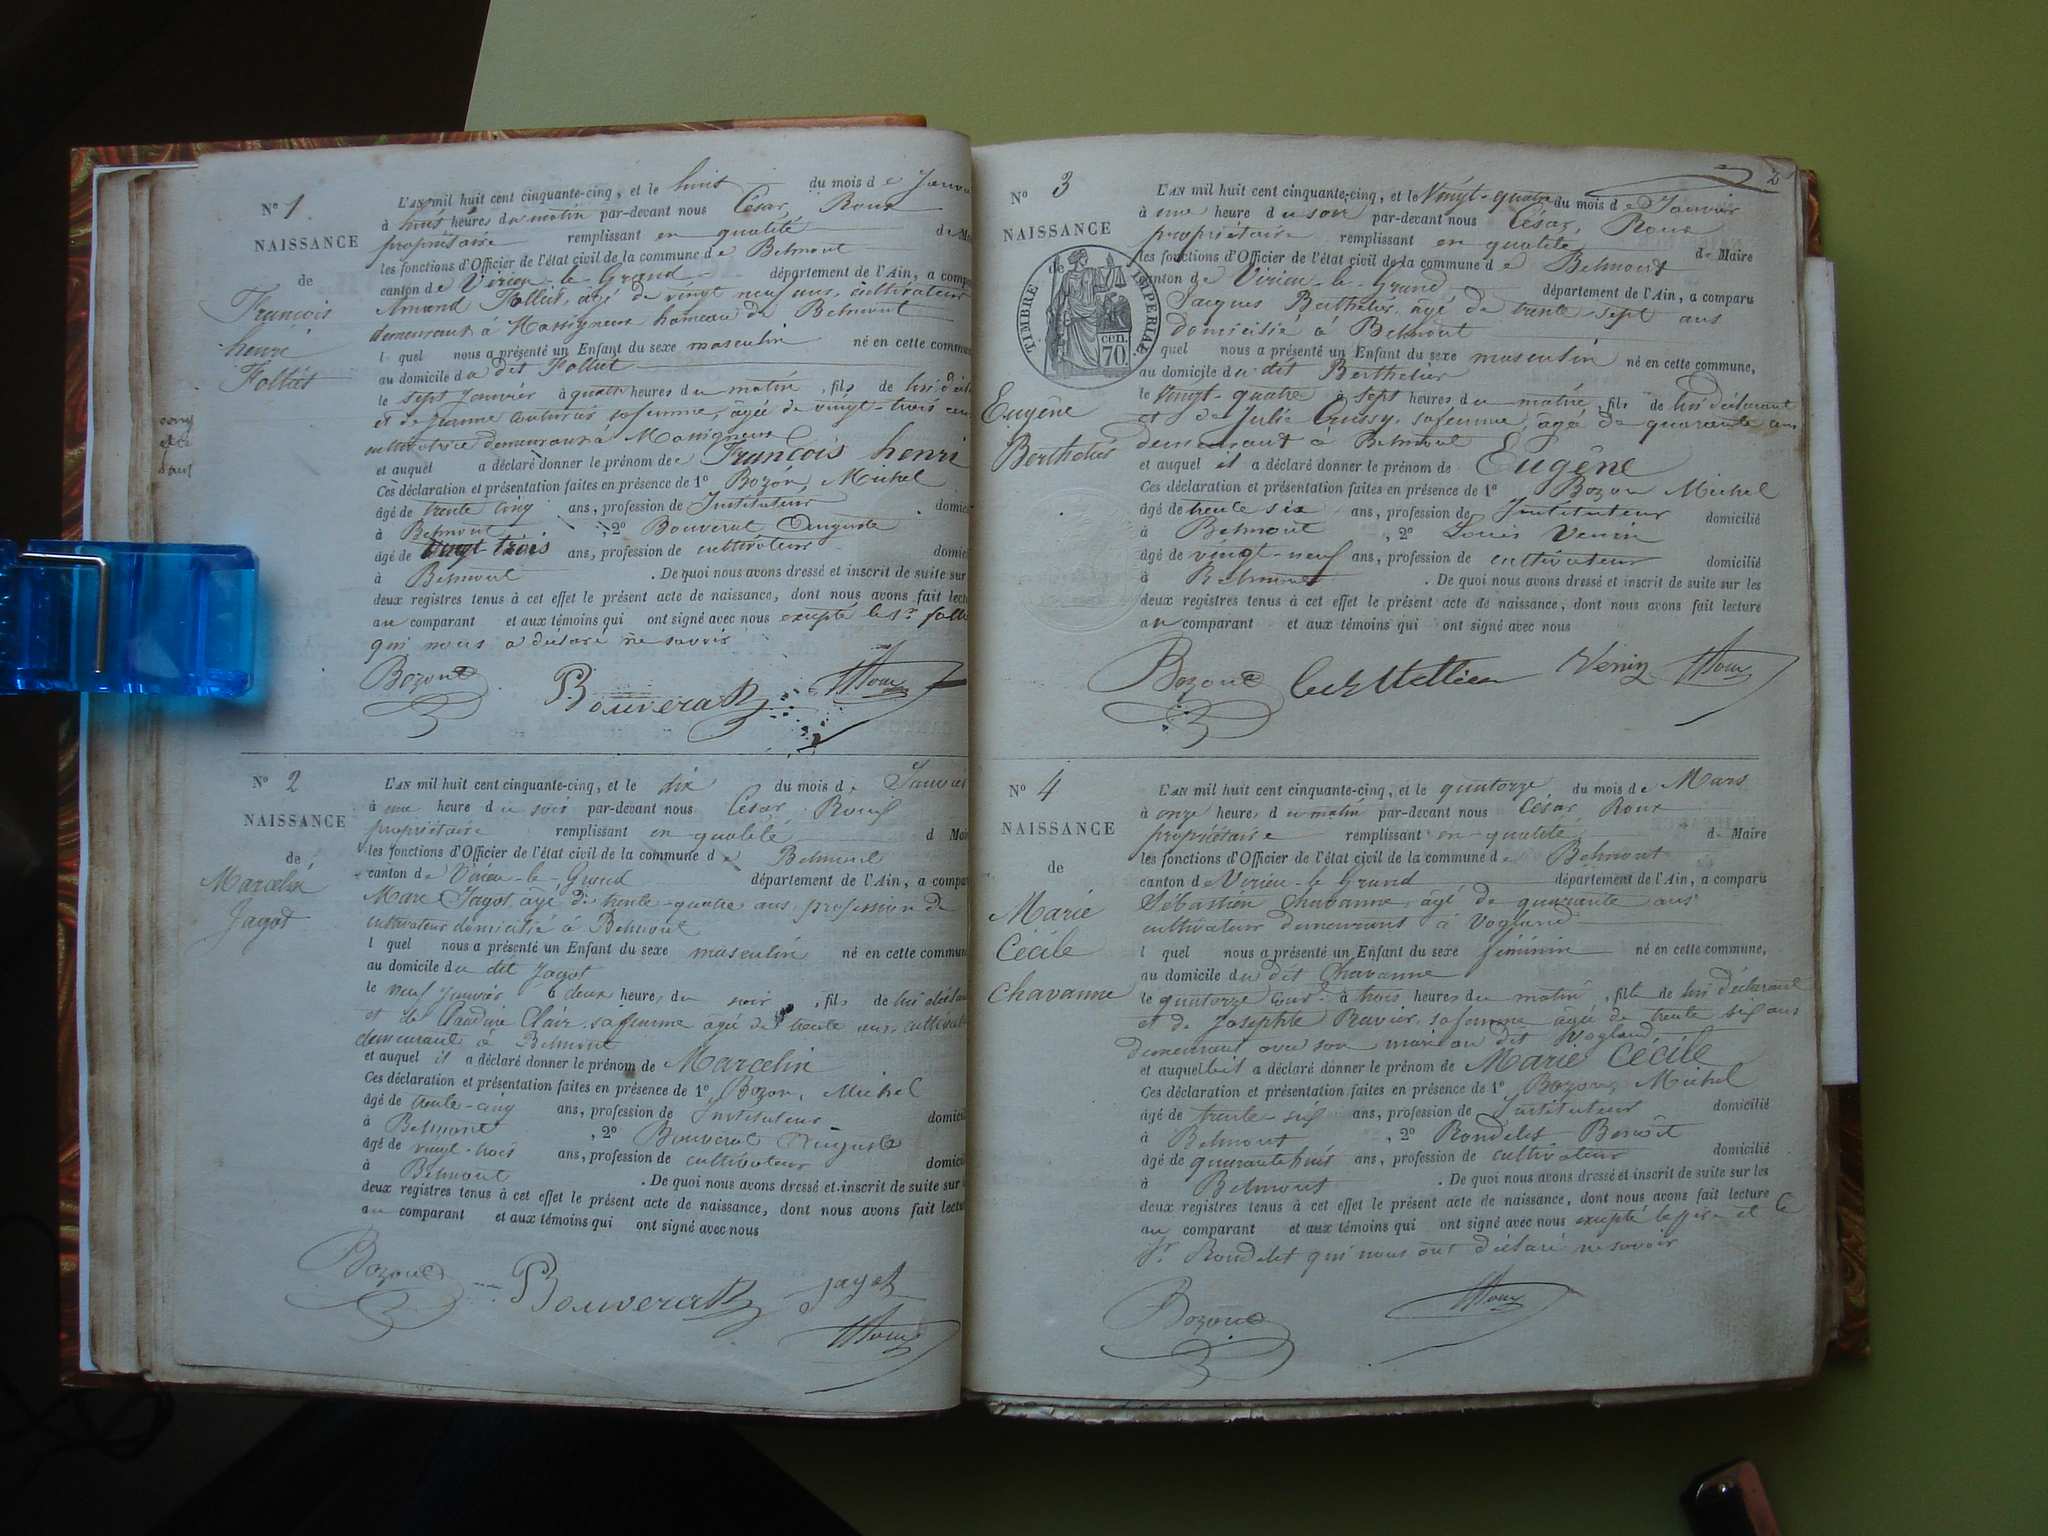 N° 1
NAISSANCE
de
François
henri
Folliet
L'AN mil huit cent cinquante-cinq, et le huit du mois de Janvier
à huit heures du matin par-devant nous César Roux
propriétaire remplissant en qualité de Maire
les fonctions d'Officier de l'état civil de la commune de Belmont
canton de Virieu-le-Grand département de l'Ain, a comparu
Amand Folliet, agé de vingt neuf ans, cultivateur
demeurant à Massigneux hameau de Belmont
l quel nous a présenté un Enfant du sexe masculin né en cette commune
au domicile du dit Folliet
le sept Janvier à quatre heures du matin, fils de lui
et de Jeanne sa femme, agée de vingt-trois ans
cultivatrice demeurant à Massigneux
et auquel a déclaré donner le prénom de François henri
Ces déclaration et présentation faites en présence de 1° Bozon, Michel
âgé de trente cinq ans, profession de Instituteur
à Belmont, 2° Bouverat Auguste
âgé de vingt-trois ans, profession de cultivateur
à Belmont. De quoi nous avons dressé et inscrit de suite sur
deux registres tenus à cet effet le présent acte de naissance, dont nous avons fait lecture
au comparant et aux témoins qui ont signé avec nous excepté le Sr. folliet
qui nous a déclaré ne savoir
Bozon Bouverat Roux
N° 2
NAISSANCE
de
Marcelin
Jagot
L'AN mil huit cent cinquante-cinq, et le dix du mois de Janvier
à une heure du soir par-devant nous César Roux
propriétaire remplissant en qualité d Maire
les fonctions d'Officier de l'état civil de la commune de Belmont
canton de Virieu-le-Grand département de l'Ain, a comparu
Marc Jagot, agé de trente-quatre ans, profession de
cultivateur domicilié à Belmont
l quel nous a présenté un Enfant du sexe masculin né en cette commune
au domicile du dit Jagot
le neuf Janvier à deux heures du soir, fils de lui déclarant
et de Claudine Clair, sa femme agée de trente ans,
demeurant à Belmont
et auquel il a déclaré donner le prénom de Marcelin
Ces déclaration et présentation faites en présence de 1° Bozon, Michel
âgé de trente-cinq ans, profession de Instituteur
à Belmont, 2° Bouverat Auguste
âgé de vingt-trois ans, profession de cultivateur
à Belmont. De quoi nous avons dressé et inscrit de suite sur
deux registres tenus à cet effet le présent acte de naissance, dont nous avons fait lecture
au comparant et aux témoins qui ont signé avec nous
Bozon Bouverat jagot
Roux
2
N° 3
NAISSANCE
de
TIMBRE IMPÉRIAL
70 CEN.
Eugène
Berthelier
L'AN mil huit cent cinquante-cinq, et le Vingt-quatre du mois de Janvier
à une heure du soir par-devant nous César, Roux
propriétaire remplissant en qualité de Maire
les fonctions d'Officier de l'état civil de la commune de Belmont
canton de Virieu-le-Grand département de l'Ain, a comparu
Jacques Berthelier, agé de trente-sept ans
domicilié à Belmont
quel nous a présenté un Enfant du sexe masculin né en cette commune,
au domicile du dit Berthelier
le vingt-quatre à sept heures du matin, fils de lui déclarant
et de Julie sa femme, agé de quarante ans
demeurant à Belmont
et auquel il a déclaré donner le prénom de Eugène
Ces déclaration et présentation faites en présence de 1° Bozon Michel
âgé de trente six ans, profession de Instituteur domicilié
à Belmont, 2° Louis Venin
âgé de vingt-neuf ans, profession de cultivateur domicilié
à Belmont. De quoi nous avons dressé et inscrit de suite sur les
deux registres tenus à cet effet le présent acte de naissance, dont nous avons fait lecture
au comparant et aux témoins qui ont signé avec nous
Bozon Venin Roux
N° 4
NAISSANCE
de
Marie
Cécile
Chavanne
L'AN mil huit cent cinquante-cinq, et le quatorze du mois de Mars
à onze heures du matin par-devant nous César, Roux
propriétaire remplissant en qualité de Maire
les fonctions d'Officier de l'état civil de la commune de Belmont
canton de Virieu-le-Grand département de l'Ain, a comparu
Sébastien Chavanne, agé de quarante ans
cultivateur demeurant à Vogland
l quel nous a présenté un Enfant du sexe féminin né en cette commune,
au domicile du dit Chavanne
le quatorze à trois heures du matin, fille de lui déclarant
et de Josephte Ravier, sa femme agée de trente six ans
demeurant avec son mari au dit Vogland
et auquel a déclaré donner le prénom de Marie Cécile
Ces déclaration et présentation faites en présence de 1° Bozon, Michel
âgé de trente-six ans, profession de Instituteur domicilié
à Belmont, 2° Rondelet Benoît
âgé de quarante huit ans, profession de cultivateur domicilié
à Belmont. De quoi nous avons dressé et inscrit de suite sur les
deux registres tenus à cet effet le présent acte de naissance, dont nous avons fait lecture
au comparant et aux témoins qui ont signé avec nous excepté le père et le
Sr. Rondelet qui nous ont déclaré ne savoir
Bozon Roux